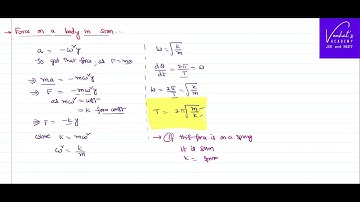 → Force on a body in SHM...
a = -ω²y
So got that force, as F = ma
⇒ ma = -mω²y
⇒ F = -mω²y
as mω² = const
= k force const
⇒ F = -ky
where k = mω²
ω² = k/m
ω = √(k/m)
dθ/dt = 2π/T = ω
ω = 2π/T = √(k/m)
T = 2π√(m/k)
→ If this force is on a spring
it is SHM
k = spring
Venkat's
ACADEMY
JEE and NEET